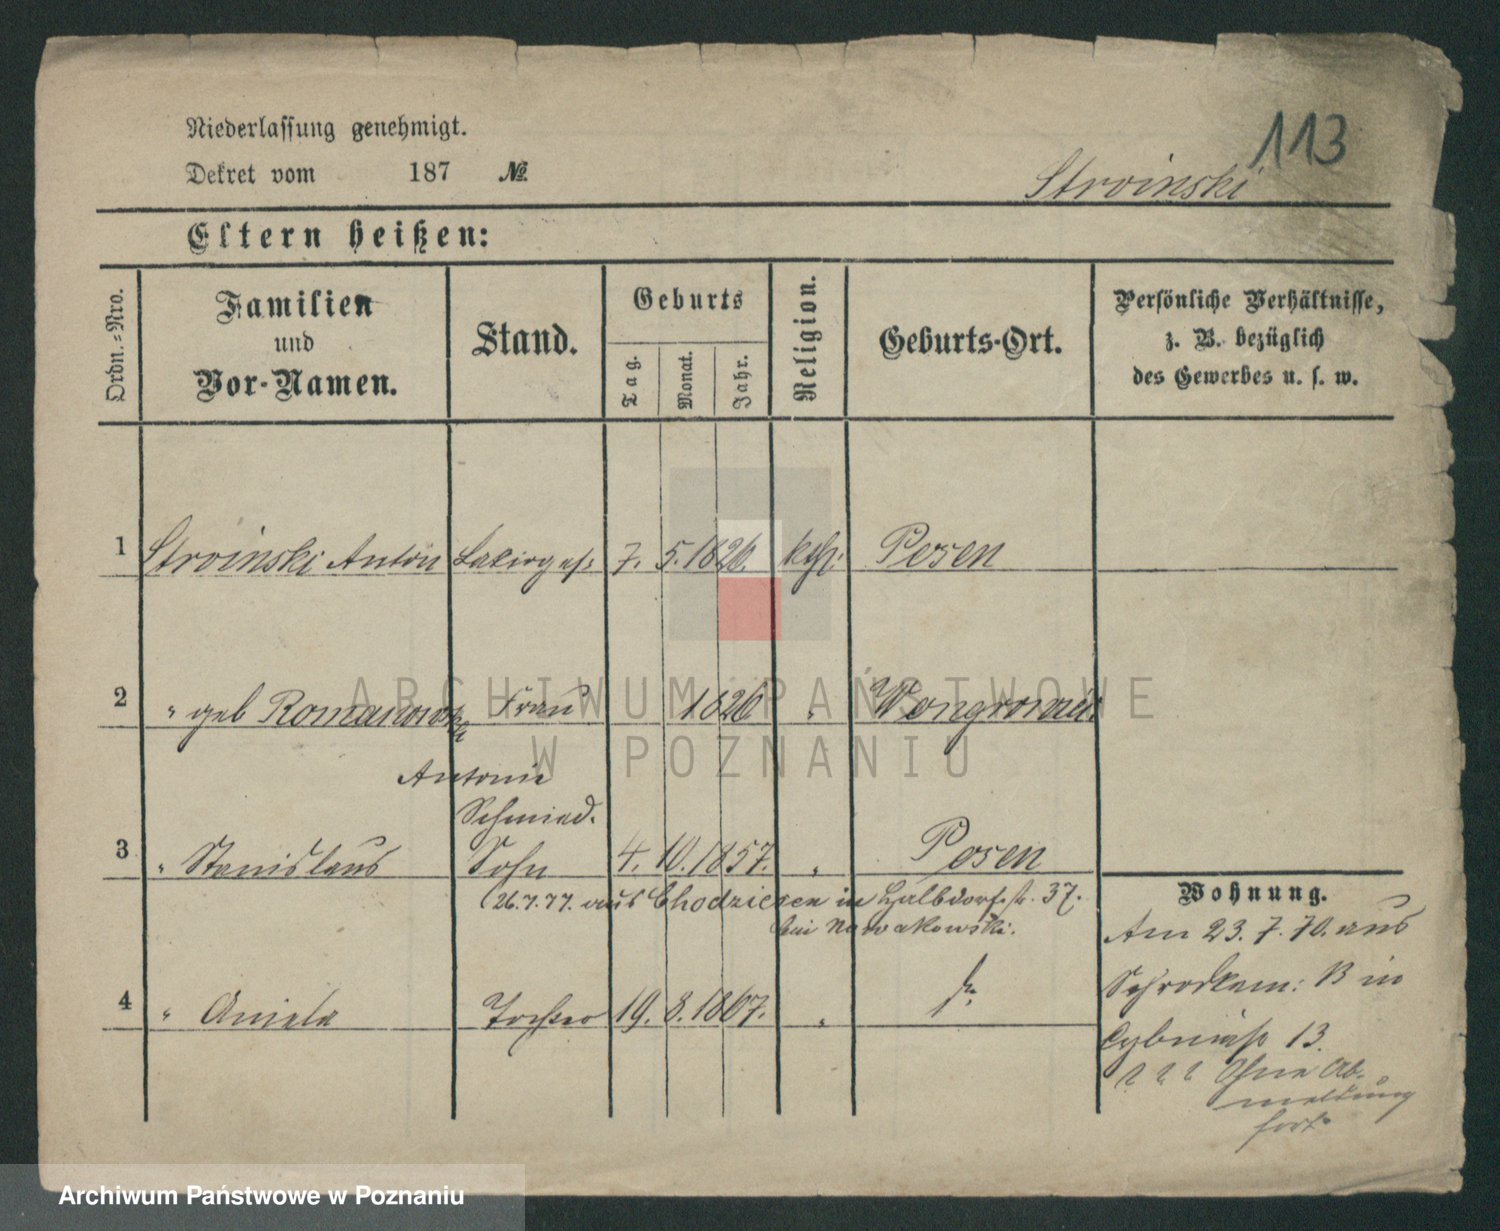 113
Niederlassung genehmigt.
Dekret vom 187 №
Stroinski
Eltern heißen:
Ordn.-Nro.
Familien
und
Vor-Namen.
Stand.
Geburts
Tag.
Monat.
Jahr.
Religion.
Geburts-Ort.
Persönliche Verhältnisse,
z. B. bezüglich
des Gewerbes u. s. w.
1 Stroinski Anton 7. 5. 1826. kth. Posen
2 " geb Romanowska Frau 1826 " Wongrowiec
Antonie
Schmied.
3 " Stanislaus Sohn 4. 10. 1857. " Posen
26.7.77. aus Chodziesen in Halbdorfstr. 37.
bei Nowakowski.
4 " Aniela Tochter 19. 8. 1867. "
Wohnung.
Am 23. 7. 70. aus
Schrodkam: B in
Cybinastr 13.
Ohne Ab-
meldung
fort
ARCHIWUM PAŃSTWOWE
W POZNANIU
Archiwum Państwowe w Poznaniu